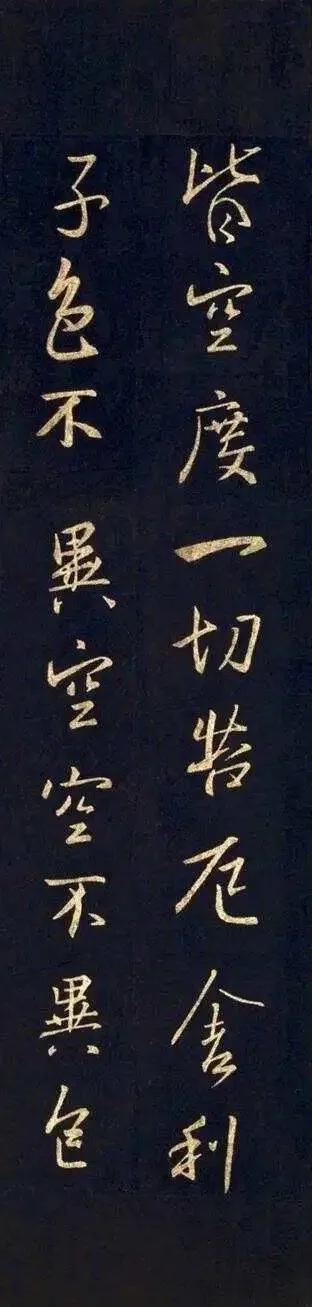 皆空度一切苦厄舍利
子色不異空空不異色